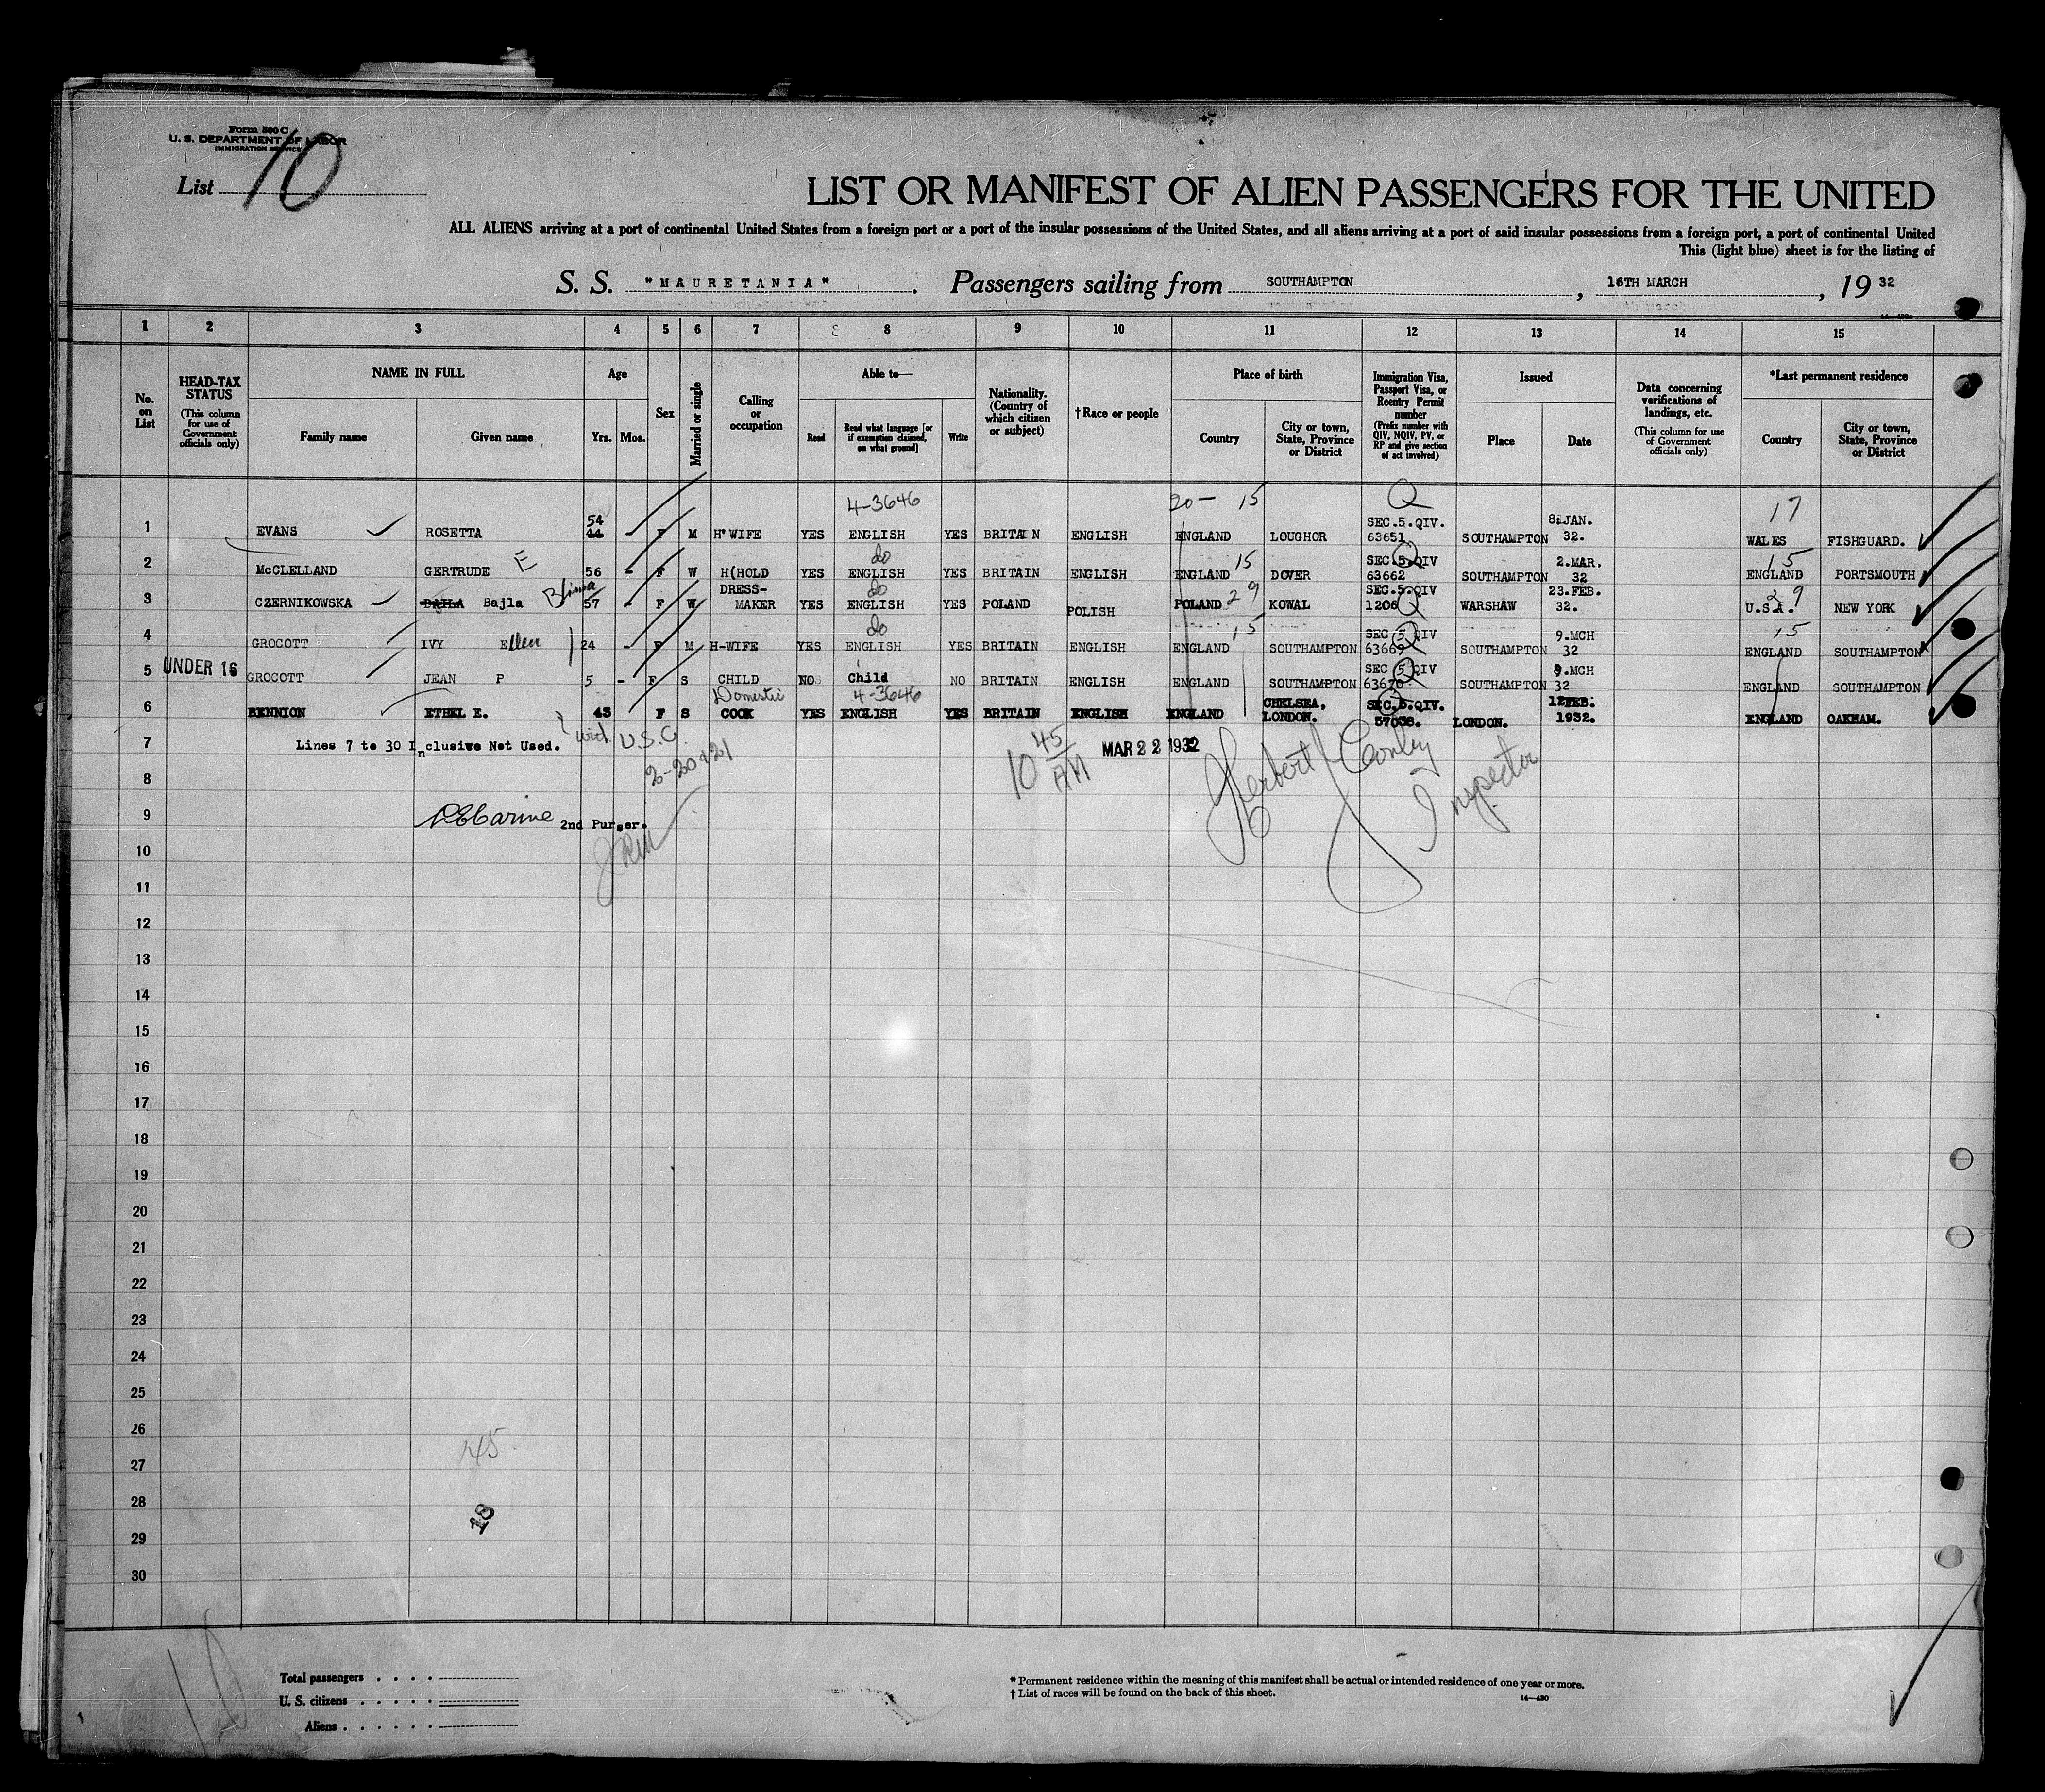 Form 500 C
U. S. DEPARTMENT OF LABOR
IMMIGRATION SERVICE
List 10
LIST OR MANIFEST OF ALIEN PASSENGERS FOR THE UNITED
ALL ALIENS arriving at a port of continental United States from a foreign port or a port of the insular possessions of the United States, and all aliens arriving at a port of said insular possessions from a foreign port, a port of continental United
This (light blue) sheet is for the listing of
S. S. "MAURETANIA". Passengers sailing from SOUTHAMPTON, 16TH MARCH, 19 32
1 2 3 4 5 6 7 8 9 10 11 12 13 14 15
No. on List
HEAD-TAX STATUS (This column for use of Government officials only)
NAME IN FULL
Family name
Given name
Age
Yrs. Mos.
Sex
Married or single
Calling or occupation
Able to—
Read
Read what language [or if exemption claimed, on what ground]
Write
Nationality. (Country of which citizen or subject)
†Race or people
Place of birth
Country
City or town, State, Province or District
Immigration Visa, Passport Visa, or Reentry Permit number (Prefix number with QIV, NQIV, PV, or RP and give section of act involved)
Issued
Place
Date
Data concerning verifications of landings, etc. (This column for use of Government officials only)
*Last permanent residence
Country
City or town, State, Province or District
4-3646 20- 15 Q 17
1 EVANS ROSETTA 54 44 F M H'WIFE YES ENGLISH YES BRITAIN ENGLISH ENGLAND LOUGHOR SEC.5.QIV. 63651 SOUTHAMPTON 8.JAN. 32. WALES FISHGUARD.
do 15 Q 15
2 McCLELLAND GERTRUDE E 56 - F W H(HOLD YES ENGLISH YES BRITAIN ENGLISH ENGLAND DOVER SEC.5.QIV 63662 SOUTHAMPTON 2.MAR. 32 ENGLAND PORTSMOUTH
Blima do 29 Q 29
3 CZERNIKOWSKA BAJLA Bajla 57 - F W DRESS-MAKER YES ENGLISH YES POLAND POLISH POLAND KOWAL SEC.5.QIV 1206 WARSHAW 23.FEB. 32. U.S.A. NEW YORK
do 15 Q 15
4 GROCOTT IVY Ellen 24 - F M H-WIFE YES ENGLISH YES BRITAIN ENGLISH ENGLAND SOUTHAMPTON SEC 5 QIV 63669 SOUTHAMPTON 9.MCH 32 ENGLAND SOUTHAMPTON
5 UNDER 16 GROCOTT JEAN P 5 - F S CHILD NO Child NO BRITAIN ENGLISH ENGLAND SOUTHAMPTON SEC 5 QIV 63670 SOUTHAMPTON 9.MCH 32 ENGLAND SOUTHAMPTON
Domestic 4-3646 Q
6 BENNION ETHEL E. 43 F S COOK YES ENGLISH YES BRITAIN ENGLISH ENGLAND CHELSEA, LONDON. SEC.5.QIV. 57038. LONDON. 12FEB. 1932. ENGLAND OAKHAM.
7 Lines 7 to 30 Inclusive Not Used. 10 45 AM MAR 22 1932 Herbert Conley Inspector
8
9 2nd Purser.
10
11
12
13
14
15
16
17
18
19
20
21
22
23
24
25
26 45
27
28 18
29
30
Total passengers
U. S. citizens
Aliens
* Permanent residence within the meaning of this manifest shall be actual or intended residence of one year or more.
† List of races will be found on the back of this sheet.
14—430